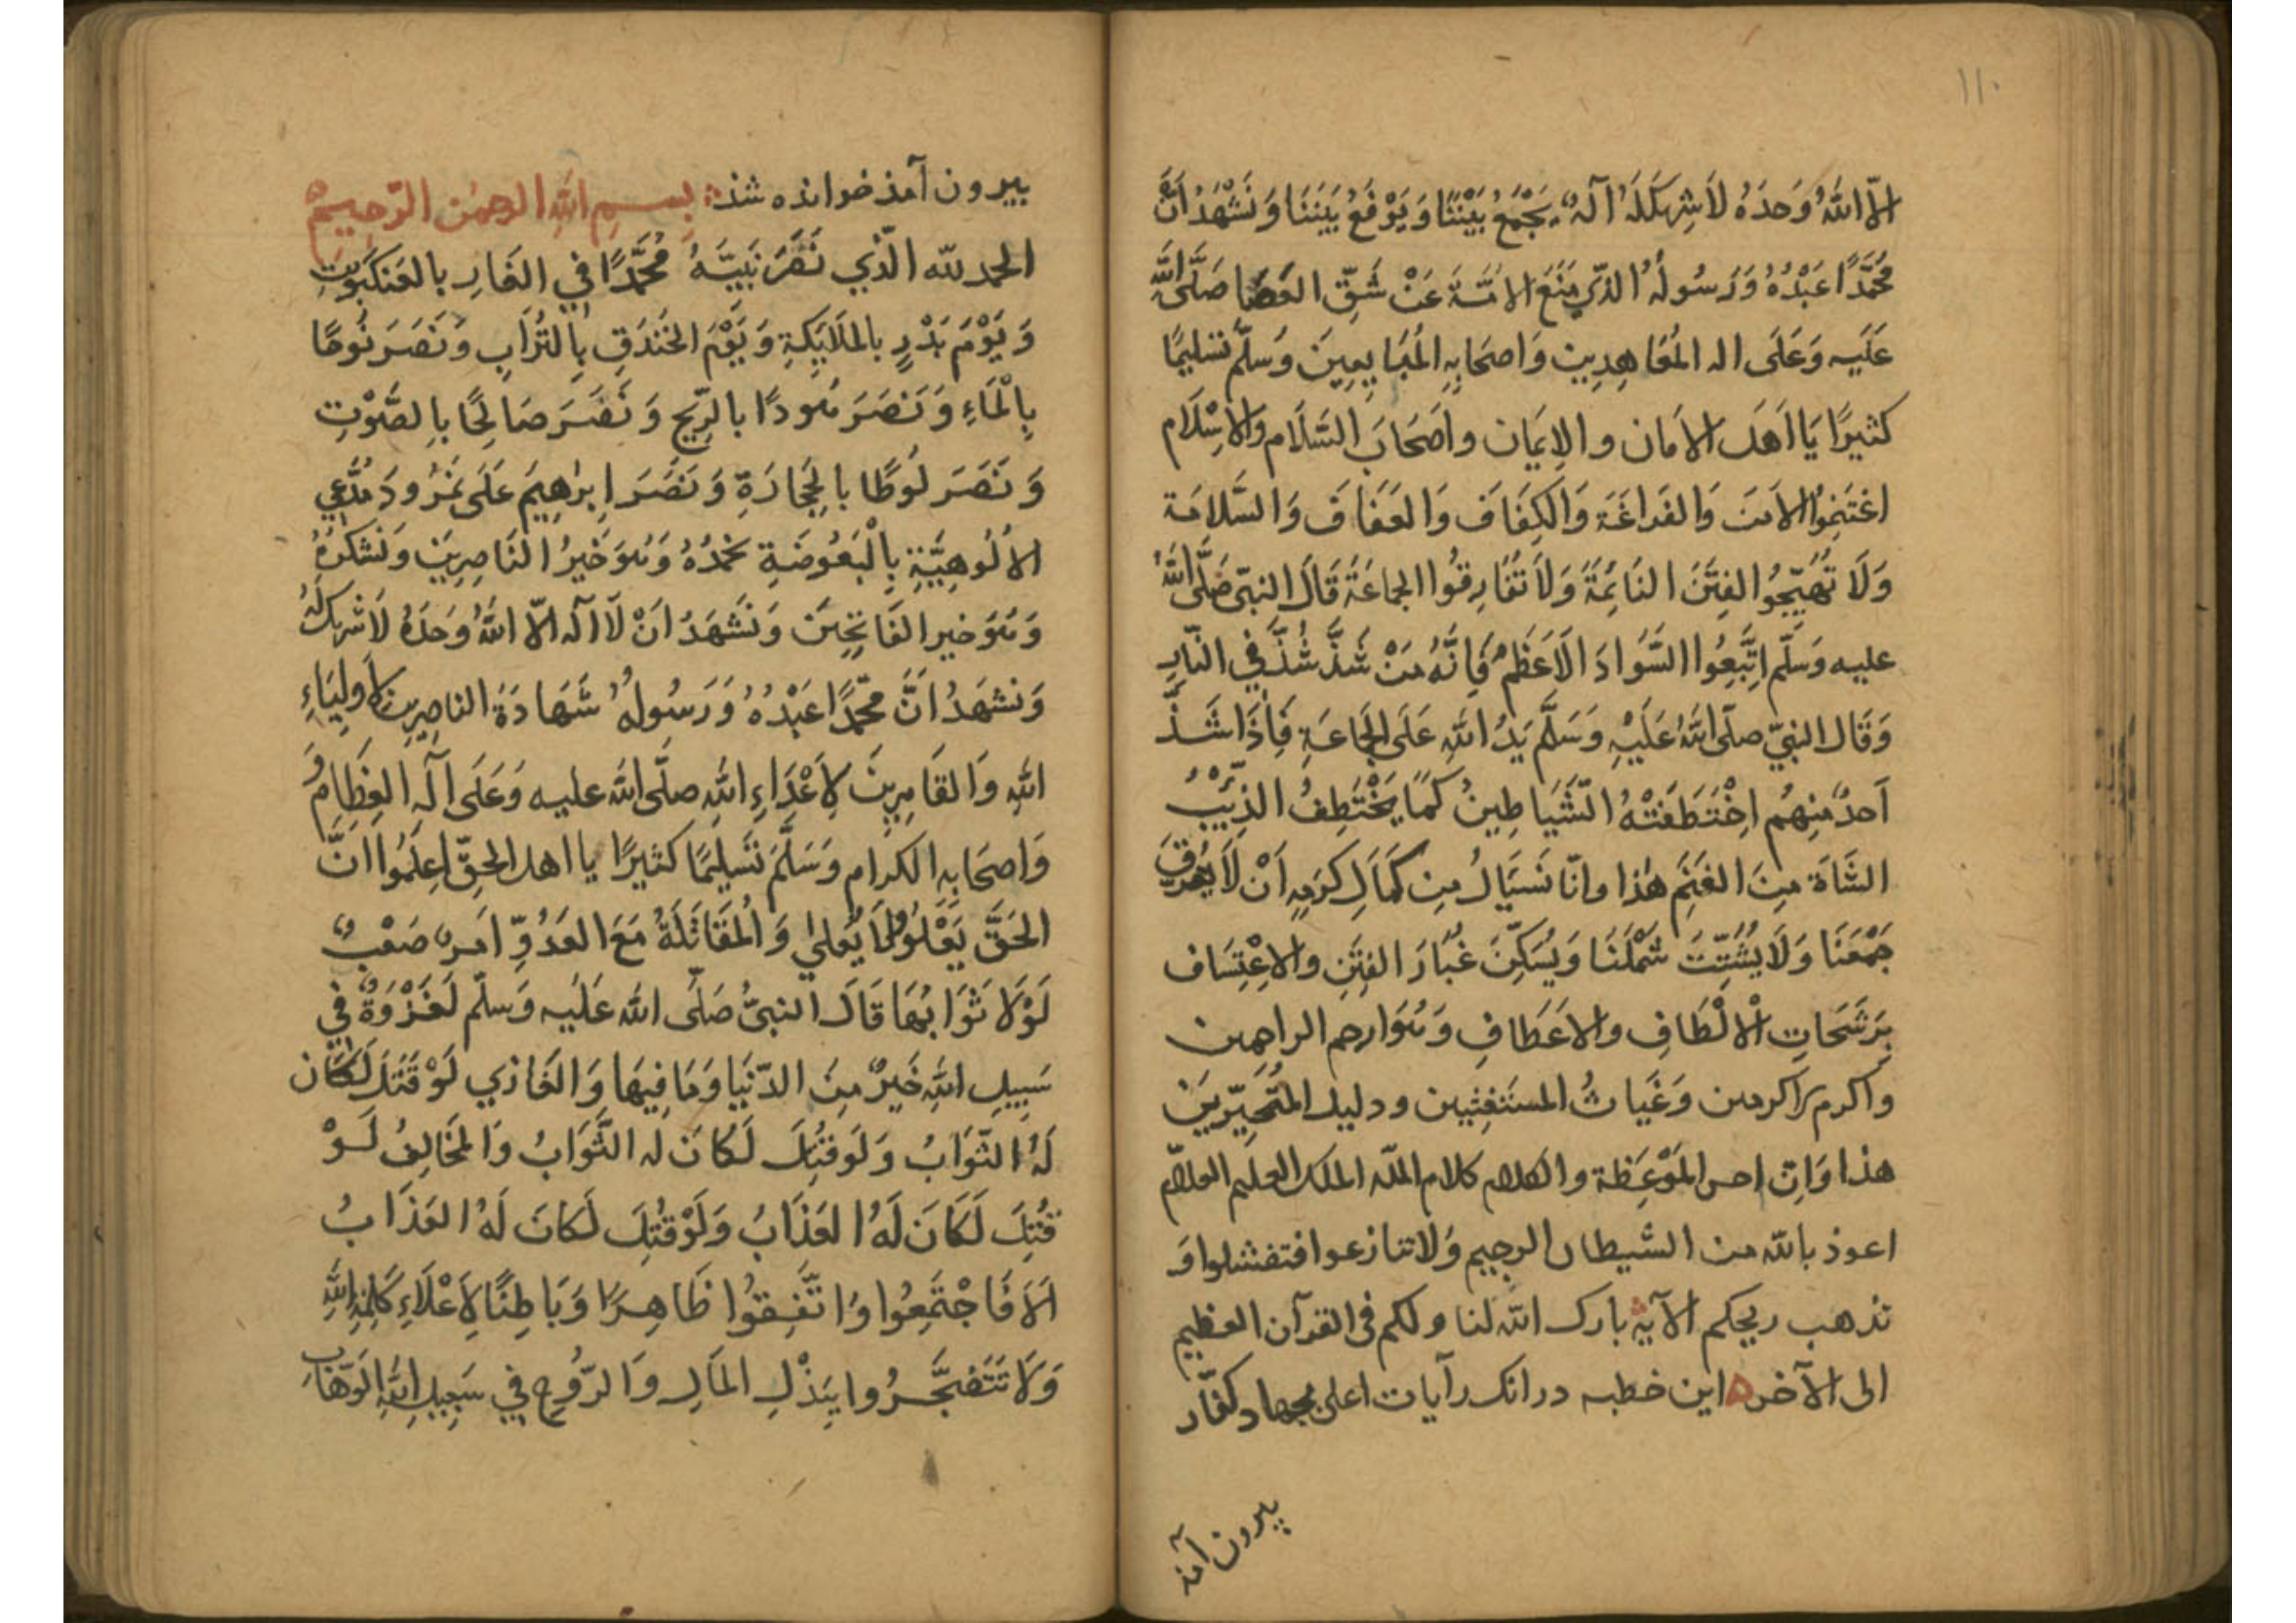 ١١٠
الّا اللهُ وَحدَهُ لَا شرِيكَ لَهُ الٓهٌ يَجْمَعُ بَيْنَنَا وَيَرْفَعُ بَينَنَا وَنَشْهَدُ اَنَّ
مُحَمَّدًا عَبْدُهُ وَرَسُولُهُ الذّي مَنَعَ الامَّةَ عَنْ شَقِّ العَصَا صَلَّى اللهُ
عَلَيه وَعَلَى اله المُعَاهِدِين وَاصحَابِهِ المُبَايِعِينَ وَسلَّم تسليمًا
كثيرًا يَا اَهلَ الامَان والايمَان واَصحَابَ السَّلَام والاسْلَام
اغتَنِمُوا الامنَ وَالفَراغَةَ وَالكَفَافَ وَالعَفَافَ وَالسَّلامَة
وَلَا تُهَيِّجُوا الفِتَنَ النَائِمَةَ وَلَا تُفَارِقُوا الجماعَةَ قَالَ النبىّ صَلَّى اللهُ
عليه وَسَلّم اِتَّبِعُوا السَّوَادَ الاَعظَم فَاِنَّهُ مَنْ شَذَّ شُذَّ فِي النَّارِ
وَقَال النبيّ صلّى اللهُ عَلَيْهِ وَسَلَّم يَدُ اللهِ عَلَى الجَماعَةِ فَاِذَا شَذَّ
اَحدٌ مِنهُم اِخْتَطَفَتْهُ الشَّيَاطِينُ كَمَا يَخْتَطِفُ الذِّئْبُ
الشَّاةَ مِنَ الغَنَمِ هٰذا وانّا نَسئَالُ مِن كَمَالِ كَرَمِهِ اَنْ لَا يُفَرِّقَ
جَمْعَنَا وَلَا يُشَتِّتَ شَمْلَنَا وَيُسَكِّنَ غُبَارَ الفِتَنِ والاِعْتِسَاف
بِرَشَحَاتِ الْالْطَافِ والاعَطَافِ وَهُوَ ارحم الراحِمِين
واكرم الاكرمين وَغَيَاثُ المستَغِثِيين ودليل المُتَحَيِّرِينَ
هذا وَاِنّ احسن المَوْعِظَة والكلام كلام اللّه الملك العليم العلّام
اعوذ باللّه من الشيطان الرجيم وَلا تنازعوا فتفشلوا وَ
تذهب ريحكم الآية بارك الله لنا ولكم فى القرآن العظيم
الى الآخر ه اين خطبه در انك رآيات اعلى بجهاد كفّار
بيرون آمذ
بيرون آمذ خوانده شذ بِسمِ اللهِ الرحمٰن الرّحِيم
الحمد للّه الّذي نَصَرَ نَبِيَّهُ مُحَمَّدًا فِي الغَارِ بالعَنكَبُوتِ
وَيَوْمَ بَدْرٍ بالمَلَايِكَةِ وَيَوْمَ الخَندَقِ بِالتُرَابِ وَنَصَرَ نُوحًا
بِالْمَاءِ وَنَصَرَ هُودًا بالرِّيحِ وَنَصَرَ صَالِحًا بِالصَّوْتِ
وَنَصَرَ لُوطًا بالحِجَارَةِ وَنَصَرَ اِبرٰهِيمَ عَلَى نَمْرُودَ مُدَّعِي
الاُلُوهِيَّةِ بِالْبَعُوضَةِ نَحمَدُهُ وَهُوَ خَيرُ النَاصِرِينَ وَنَشكُرُهُ
وَهُوَ خير الفَاتِحِينَ وَنَشهَدُ اَنْ لَا الٓه الّا اللهُ وَحَدَهُ لَا شريكَ لَهُ
وَنشهَدُ اَنَّ محّمدًا عَبْدُهُ وَرَسُولُهُ شَهَادَةَ الناصِرِينَ لاَولِيَاءِ
اللهِ وَالقَاهِرِينَ لِاَعْدَاءِ اللهِ صلَّى اللهُ عليه وَعَلَى آلَه العِظَامِ وَ
وَاصحَابِهِ الكرام وَسَلَّمَ تَسلِيمًا كثيرًا يا اهل الحقِّ اِعلَمُوا انَّ
الحَقَّ يَعْلُوْ وَلَا يُعلىٰ وَالمُقَاتَلَةُ مَعَ العَدُوِّ اَمرٌ صَعْبٌ
لَوْلَا ثَوَابُهَا قَالَ النبىُّ صَلّى الله عَلَيه وَسلّم لَغَزْوَةٌ فِي
سَبِيلِ اللهِ خَيرٌ مِنَ الدّنيَا وَمَا فِيهَا وَالغَازِي لَوْ قَتَلَ لَكَان
لَهُ الثّوَابُ وَلَو قُتِلَ لَكَانَ له الثَّوَابُ وَالمخَالِفُ لَوْ
قُتِلَ لَكَانَ لَهُ العَذَابُ وَلَوْ قُتِلَ لَكَانَ لَهُ العَذَابُ
اَلَا فَاجْتَمِعُوا وَاتَّفِقُوا ظَاهِرًا وَبَاطِنًا لِاَعْلَاءِ كَلِمَةِ اللهِ
وَلَا تَتَضَجَّرُوا بِبَذْلِ المَالِ وَالرّوُحِ فِي سَبِيلِ اللهِ الوَهَّابِ